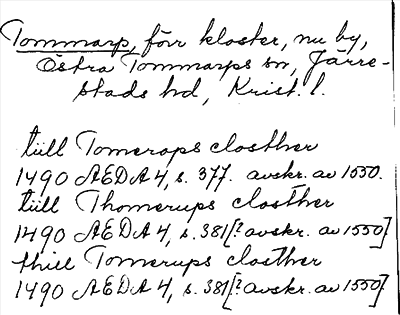 Tommarp, förr kloster, nu by,
Östra Tommarps sn, Järre-
stads hd, Krist. l.
tüll Tomerops closther
1490 ÆDA 4, s. 377. avskr. av 1550.
tüll Thomerups closther
1490 ÆDA 4, s. 381 [? avskr. av 1550]
thill Tomerups closther
1490 ÆDA 4, s. 381 [? avskr. av 1550]